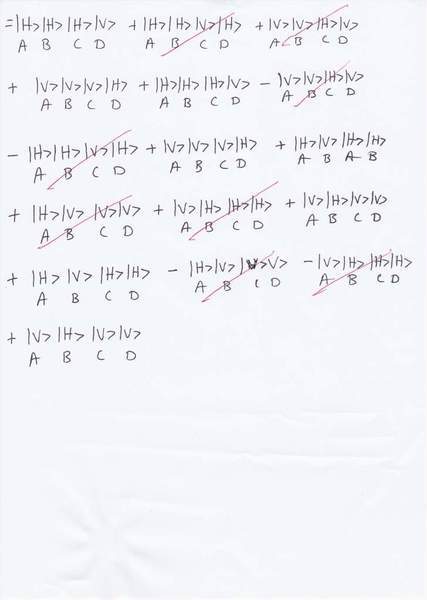 =|H>|H>|H>|V> +|H>|H>|V>|H> +|V>|V>|H>|V>
A B C D A B C D A B C D
+ |V>|V>|V>|H> +|H>|H>|H>|V> -|V>|V>|H>|V>
A B C D A B C D A B C D
-|H>|H>|V>|H> +|V>|V>|V>|H> +|H>|V>|H>|H>
A B C D A B C D A B A B
+|H>|V>|V>|V> +|V>|H>|H>|H> +|V>|H>|V>|V>
A B C D A B C D A B C D
+|H>|V>|H>|H> -|H>|V>|V>V> -|V>|H>|H>|H>
A B C D A B C D A B C D
+|V>|H>|V>|V>
A B C D